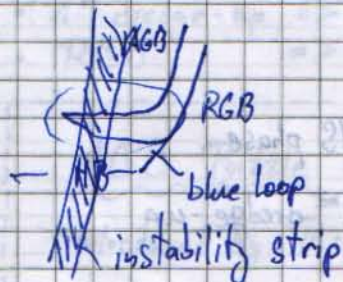 AGB
RGB
HB
blue loop
instability strip